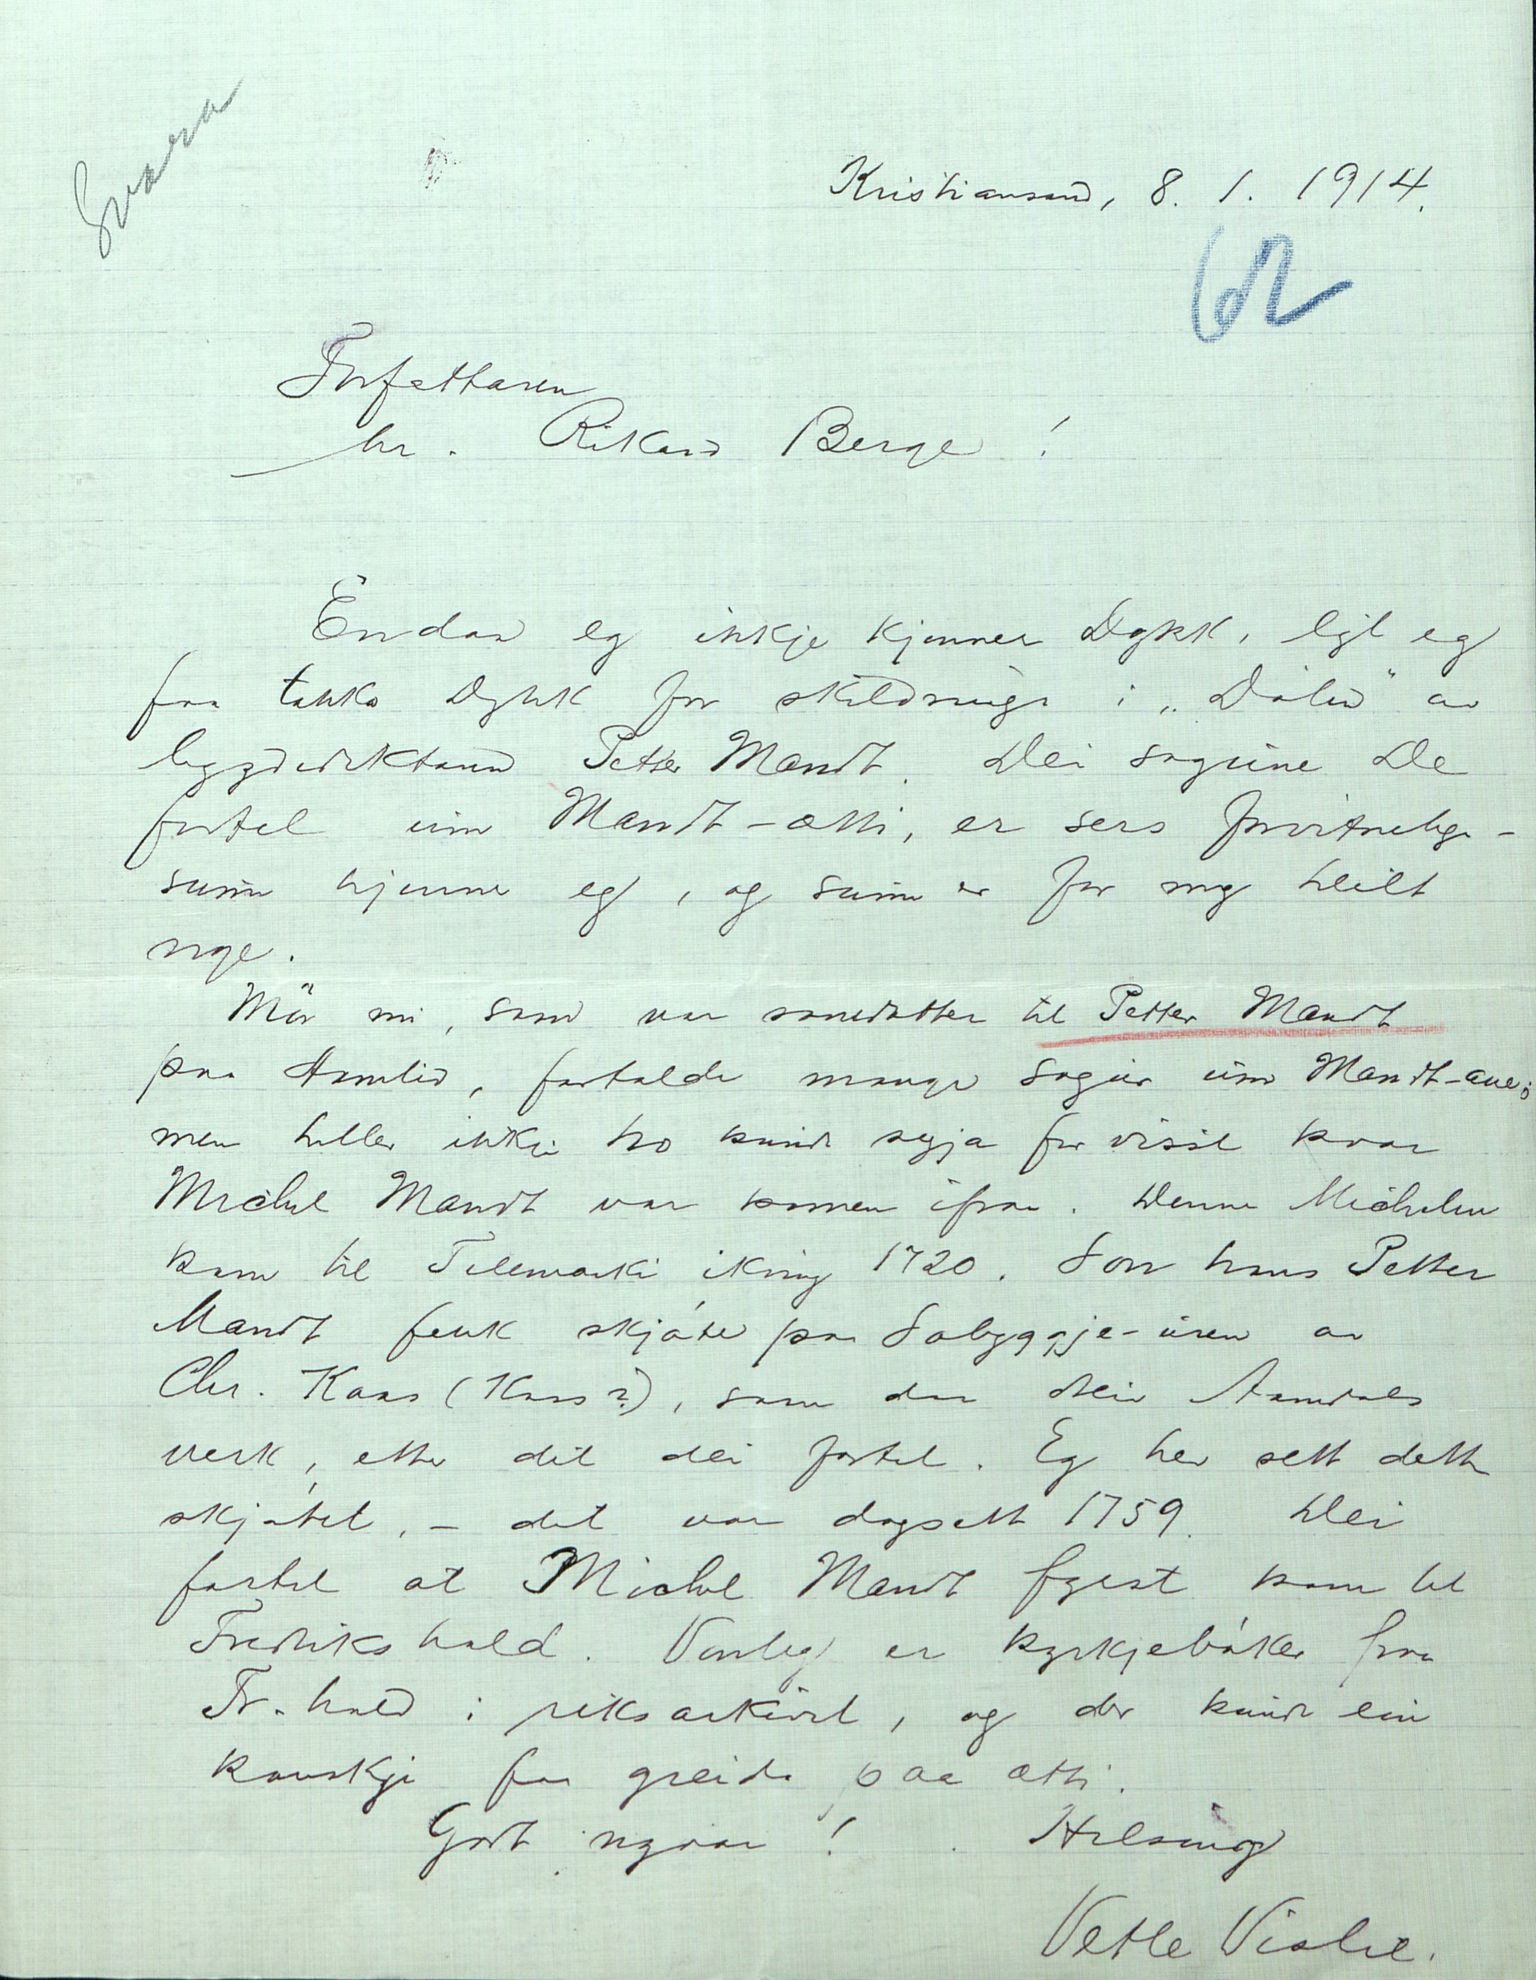 Svara
Kristiansand, 8. 1. 1914.
Forfattaren
hr. Rikard Berge!
Endaa eg inkje kjenner Dykk, lyt eg
faa takka Dykk for skildringi i „Dølen" av
bygdediktaren Petter Mandt. Dei sogune De
fortel um Mandt-ætti, er sers forvitnelege -
sume kjenner eg, og sume er for meg heilt
nye.
Mor mi, som var sonedotter til Petter Mandt
paa Hamlid, fortalde mange sogur um Mandt-ane;
men heller inkje ho kunde segja for visst kvar
Michel Mandt var komen ifraa. Denne Michelen
kom til Telemarki ikring 1720. Son hans Petter
Mandt fekk skjøte paa Sobyggje- av
Chr. Kaas (Kass?), som daa dreiv Aamdals
verk, etter det dei fortel. Eg hev sett dette
skjøtet, – det var dagsett 1759. Dei
fortel at Michel Mandt fyrst kom til
Fredrikshald. Venteleg er kyrkjebøker fraa
Fr.hald i riksarkivet, og der kunde ein
kanskje faa greida paa ætti.
Godt nyaar! Helsing
Vetle Vislie.